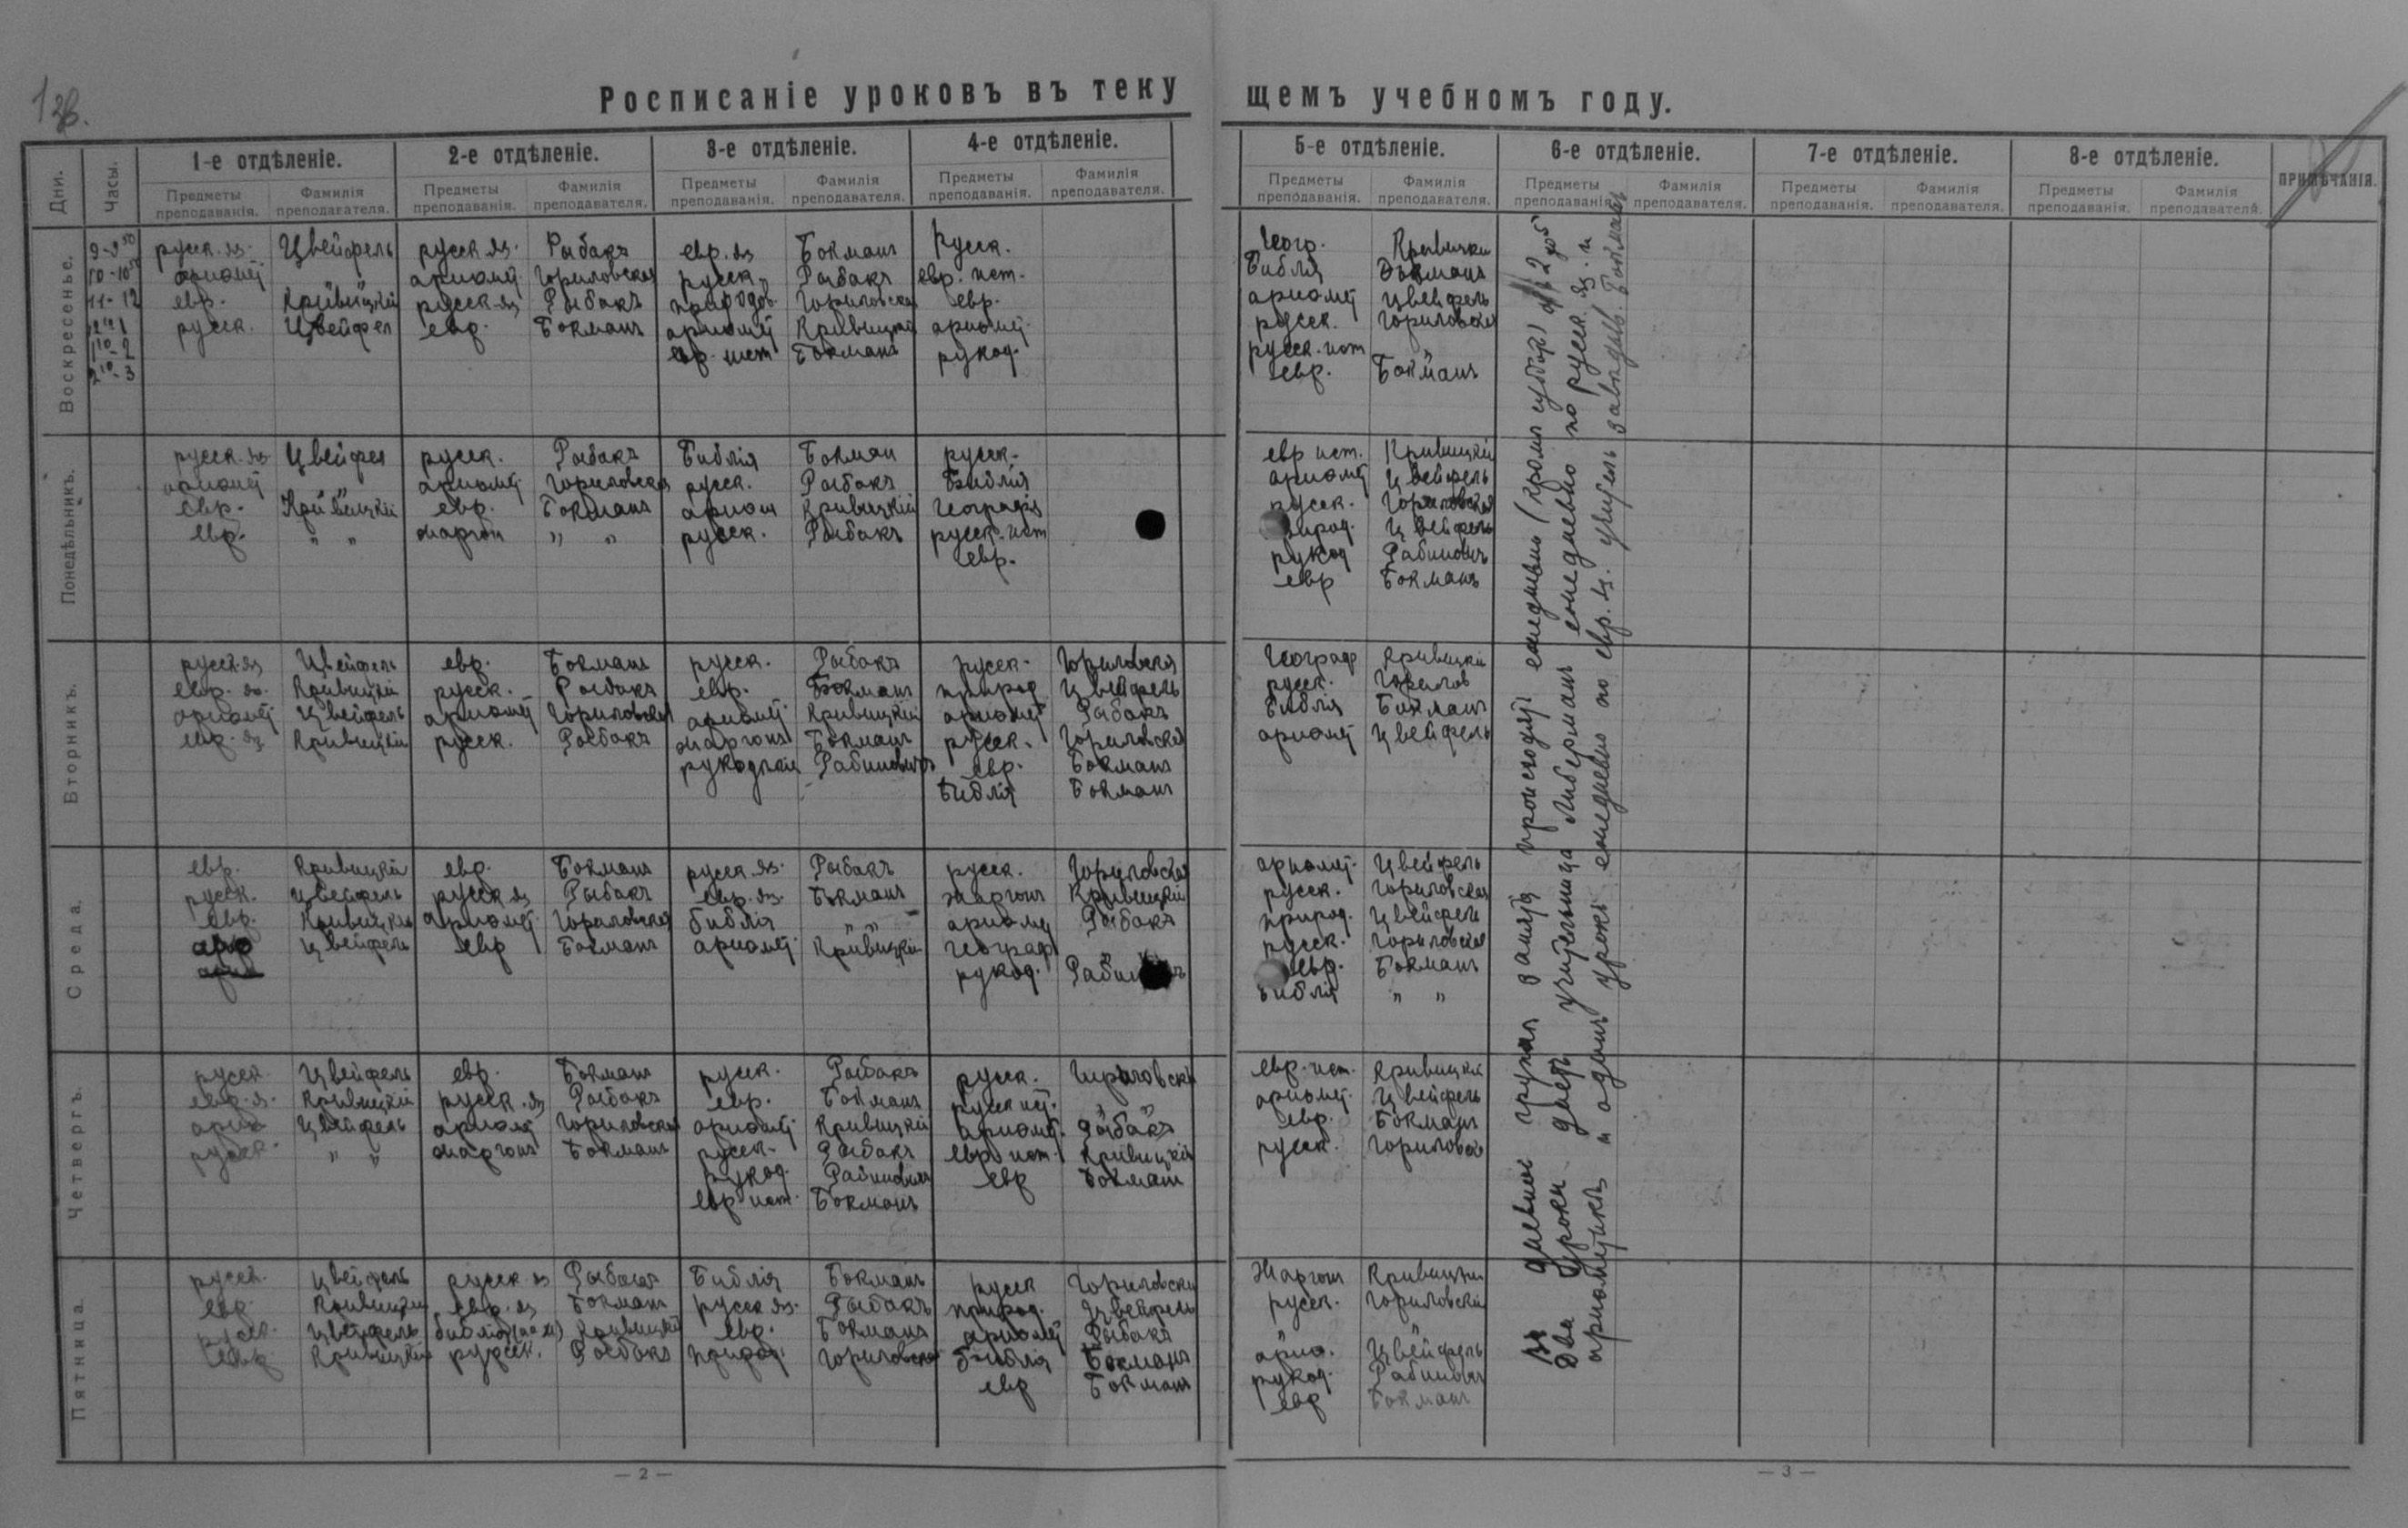 13в.
Росписаніе уроковъ въ теку щемъ учебномъ году.
Дни. Часы. 1-е отдѣленіе. 2-е отдѣленіе. 3-е отдѣленіе. 4-е отдѣленіе. 5-е отдѣленіе. 6-е отдѣленіе. 7-е отдѣленіе. 8-е отдѣленіе. ПРИМѢЧАНІЯ.
Предметы преподаванія. Фамилія преподавателя. Предметы преподаванія. Фамилія преподавателя. Предметы преподаванія. Фамилія преподавателя. Предметы преподаванія. Фамилія преподавателя. Предметы преподаванія. Фамилія преподавателя. Предметы преподаванія. Фамилія преподавателя. Предметы преподаванія. Фамилія преподавателя. Предметы преподаванія. Фамилія преподавателя.
Воскресенье.
9-9 50 русск. яз. Цвейфель русск яз. Рыбакъ евр. яз Бокманъ Русск. Геогр. Кривицкій
10-10 50 ариѳмет ариѳмет. Гориловская русск. Рыбакъ евр. ист. Библія Бокманъ
11-12 евр. Кривицкій русск яз Рыбакъ природов. Гориловская евр. ариѳмет Цвейфель
12 10 1 русск. Цвейфел евр. Бокманъ ариѳмет Кривицкій ариѳмет. русск. Гориловская
1 10-2 евр. ист Бокманъ рукод. русск. ист "
2 10-3 евр. Бокманъ
Понедѣльникъ.
русск. яз Цвейфел русск. Рыбакъ Библія Бокман русск. евр ист. Кривицкій
ариѳмет " ариѳмет. Гориловская русск. Рыбакъ Библія ариѳмет Цвейфель
евр. Кривицкій евр. Бокманъ ариѳм Кривицкій Географія русск. Гориловская
евр. " " жаргон " " русск. Рыбакъ русск. ист природ. Цвейфель
евр. рукод Рабиновичъ
евр Бокманъ
Вторникъ.
русск. яз Цвейфель евр. Бокманъ русск. Рыбакъ русск. Гориловская Географ Кривицкій
евр. яз. Кривицкій русск. Рыбакъ евр. Бокманъ природ Цвейфель русск. Горилов
ариѳмет Цвейфель ариѳмет Гориловская ариѳмет. Кривицкій ариѳмет Рыбакъ Библія Бокманъ
евр. яз Кривицкій русск. Рыбакъ жаргонъ Бокманъ русск. Гориловская ариѳмет Цвейфель
рукодѣліе Рабиновичъ евр. Бокманъ
Библія Бокманъ
Среда.
евр. Кривицкій евр. Бокманъ русск яз. Рыбакъ русск. Гориловская ариѳмет. Цвейфель
русск. Цвейфель русск яз Рыбакъ евр. яз. Бокманъ жаргонъ Кривицкій русск. Гориловская
евр. Кривицкій ариѳмет. Гориловская библія " " ариѳмет Рыбакъ природ. Цвейфель
Цвейфель евр Бокманъ ариѳмет. Кривицкій географ " русск. Гориловская
рукод. евр. Бокманъ
Библія " "
Четвергъ.
русск. Цвейфель евр. Бокманъ русск. Рыбакъ русск. Гориловска евр. ист. Кривицкій
евр. я. Кривицкій русск. яз Рыбакъ евр. Бокманъ русск ист. " ариѳмет. Цвейфель
ариѳ Цвейфель ариѳмет Гориловская ариѳмет. Кривицкій ариѳмет. Рыбакъ евр. Бокманъ
русск. " " жаргонъ Бокманъ русск. Рыбакъ евр ист. Кривицкій русск. Горилова
рукод. Рабиновичъ евр Бокман
евр ист. Бокманъ
Пятница.
русск. Цвейфель русск. яз Рыбакъ Библія Бокманъ русск Гориловски Жаргонъ Кривицкій
евр. Кривицкій евр. яз Бокманъ русск яз. Рыбакъ природ. Цвейфель русск. Гориловскій
русск. Цвейфель Кривицкій евр. Бокманъ ариѳмет Рыбакъ "
евр Кривицкій русск. Рыбакъ природ. Гориловска библія Бокманъ ариѳ. Цвейфель
евр Бокманъ рукод. Рабинович
евр Бокманъ
дневной группѣ занятія происходятъ ежедневно (кромѣ субботы) 2 до 5
Два урока даетъ учительница Либерманъ ежедневно по русск. яз. и
ариѳметикѣ и одинъ урокъ ежедневно по евр. яз. учитель завѣдыв. Бокманъ
— 2 —
— 3 —